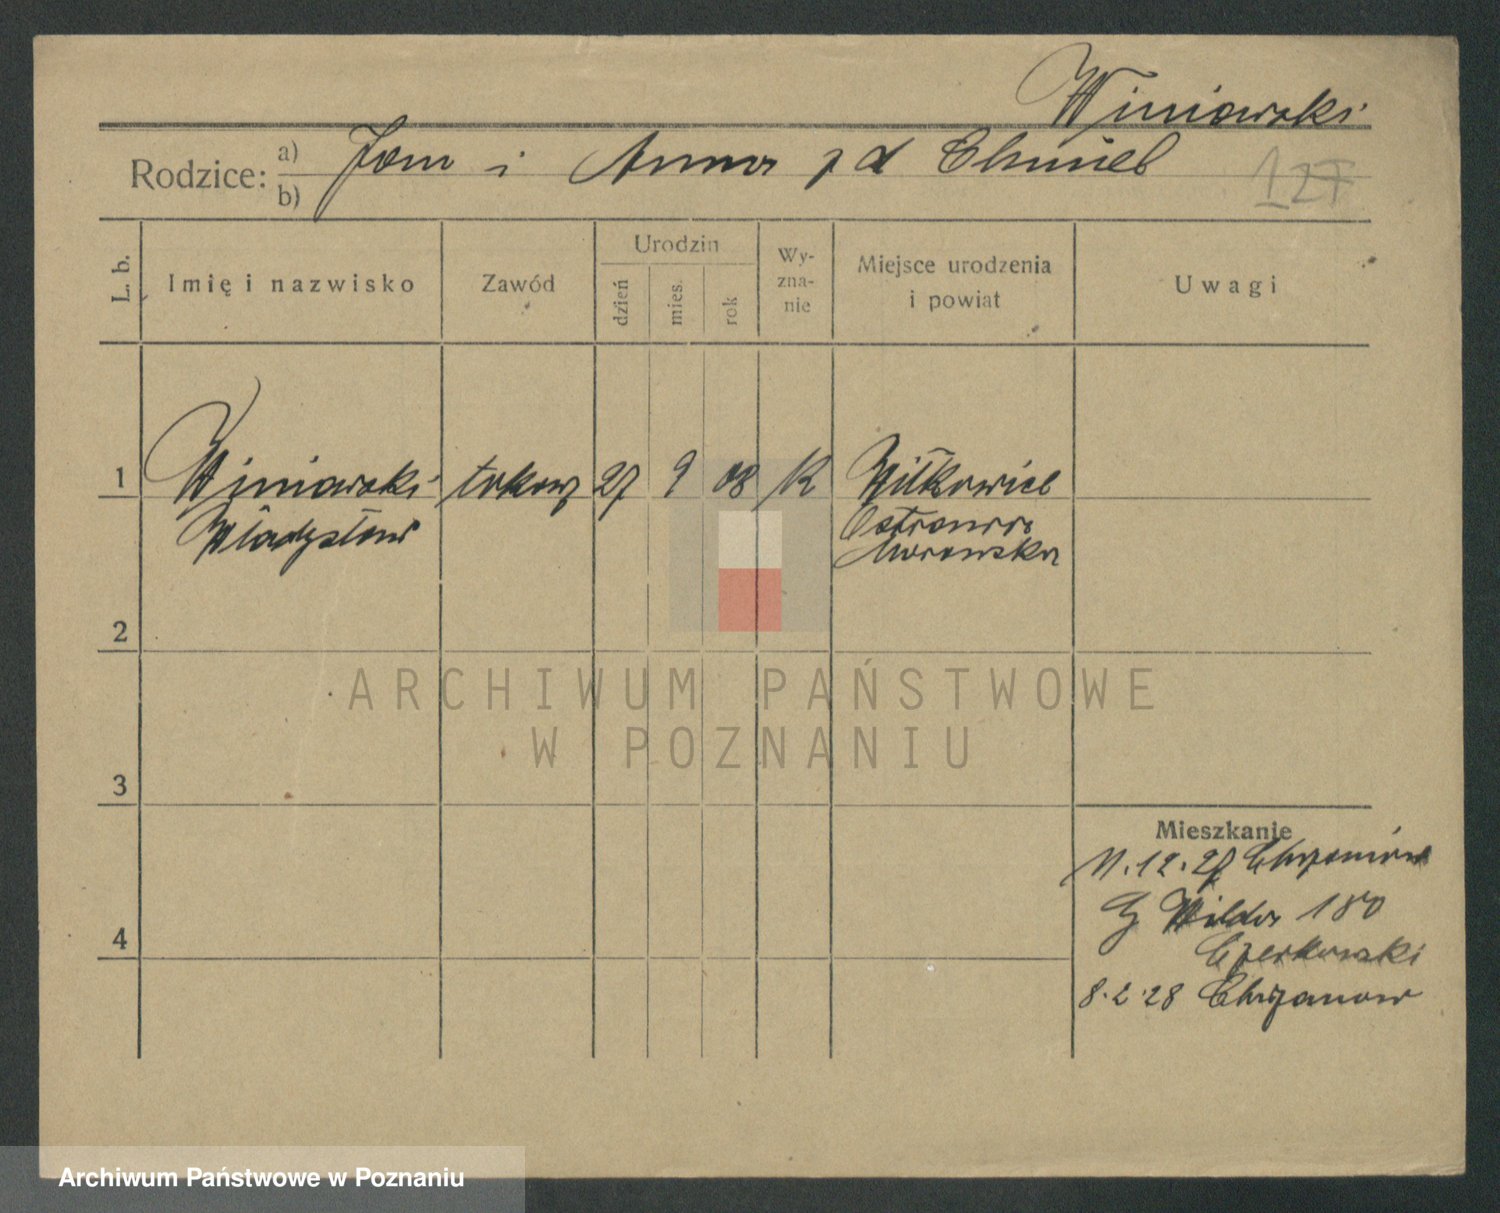 Winiarski
Rodzice: a) b) Jan i Anna z d Chmiel
127
L. b. Imię i nazwisko Zawód Urodzin dzień mies. rok Wy-zna-nie Miejsce urodzenia i powiat Uwagi
1 Winiarski tokarz 27 9 08 K Witkowice
Władysław Ostrowia
Morawska
2
ARCHIWUM PAŃSTWOWE
W POZNANIU
3
Mieszkanie
12.27 Chrzanów
G Wilda 180
4
Czerkawski
8.2.28 Chrzanow
Archiwum Państwowe w Poznaniu